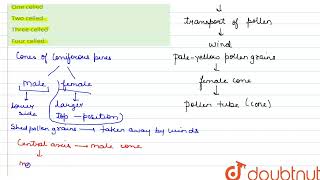 One celled
Two celled
Three celled
Four celled
Cones of Coniferous pines
Male
female
Lower side
larger
Top → position
Shed pollen grains → taken away by winds
Central axis → male cone
↓
transport of pollen
↓
wind
↓
pale-yellow pollen grains
↓
female cone
↓
pollen tube (cone)
doubtnut